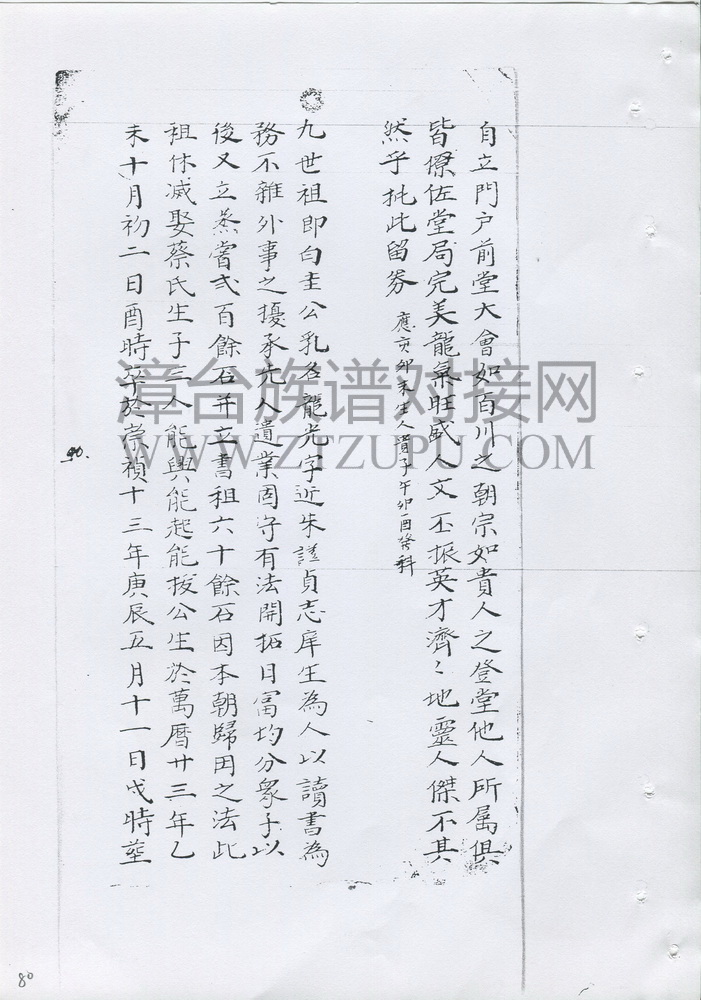 自立門户前堂大會如百川之朝宗如貴人之登堂他人所屬俱
皆僚佐堂局完美龍氣旺盛人文丕振英才濟〻地靈人傑不其
然乎批此留券 應亥卯未生人貴子午卯酉登科
九世祖即白圭公乳名龍光字近朱諡貞志庠生為人以讀書為
務不雜外事之擾承先人遺業固守有法開拓日富均分眾子以
後又立蒸嘗弍百餘石并立書租六十餘石因本朝歸田之法此
租休减娶蔡氏生子三人能興能起能拔公生於萬曆廿三年乙
未十月初二日酉時卒於崇禎十三年庚辰五月十一日戌時塟
90.
80
漳台族谱对接网
WWW.ZTZUPU.COM